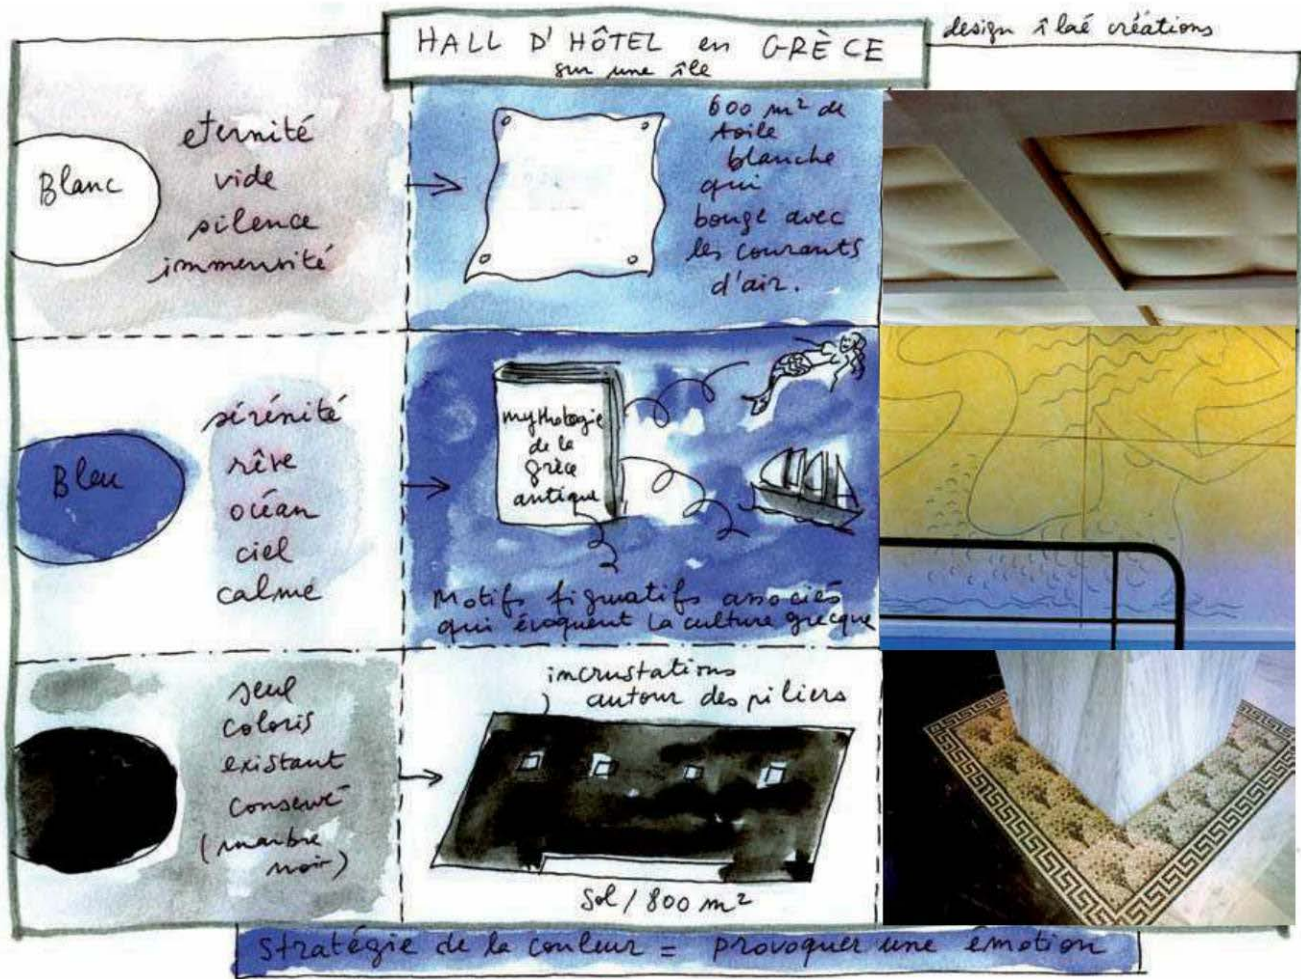 HALL D'HÔTEL en GRÈCE
sur une île
design îlaé créations
Blanc
eternité
vide
silence
immensité
600 m² de
toile
blanche
qui
bouge avec
les courants
d'air.
Bleu
sérénité
rêve
océan
ciel
calme
mythologie
de la
grèce
antique
Motifs figuratifs associés
qui évoquent la culture grecque
seul
coloris
existant
conservé
(marbre
noir)
incrustations
autour des piliers
Sol / 800 m²
Stratégie de la couleur = provoquer une émotion